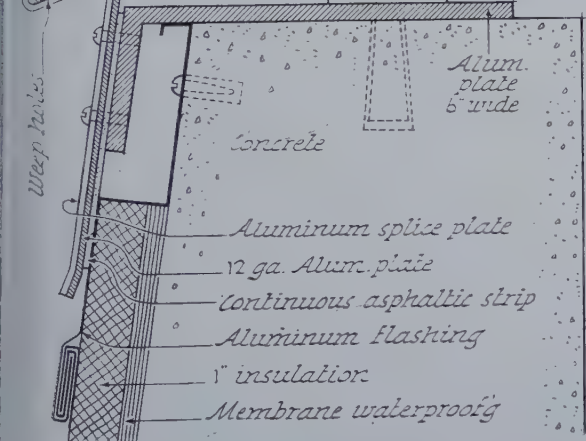 Weep holes
Alum.
plate
6" wide
Concrete
Aluminum splice plate
12 ga. Alum. plate
Continuous asphaltic strip
Aluminum flashing
1" insulation
Membrane waterproof'g